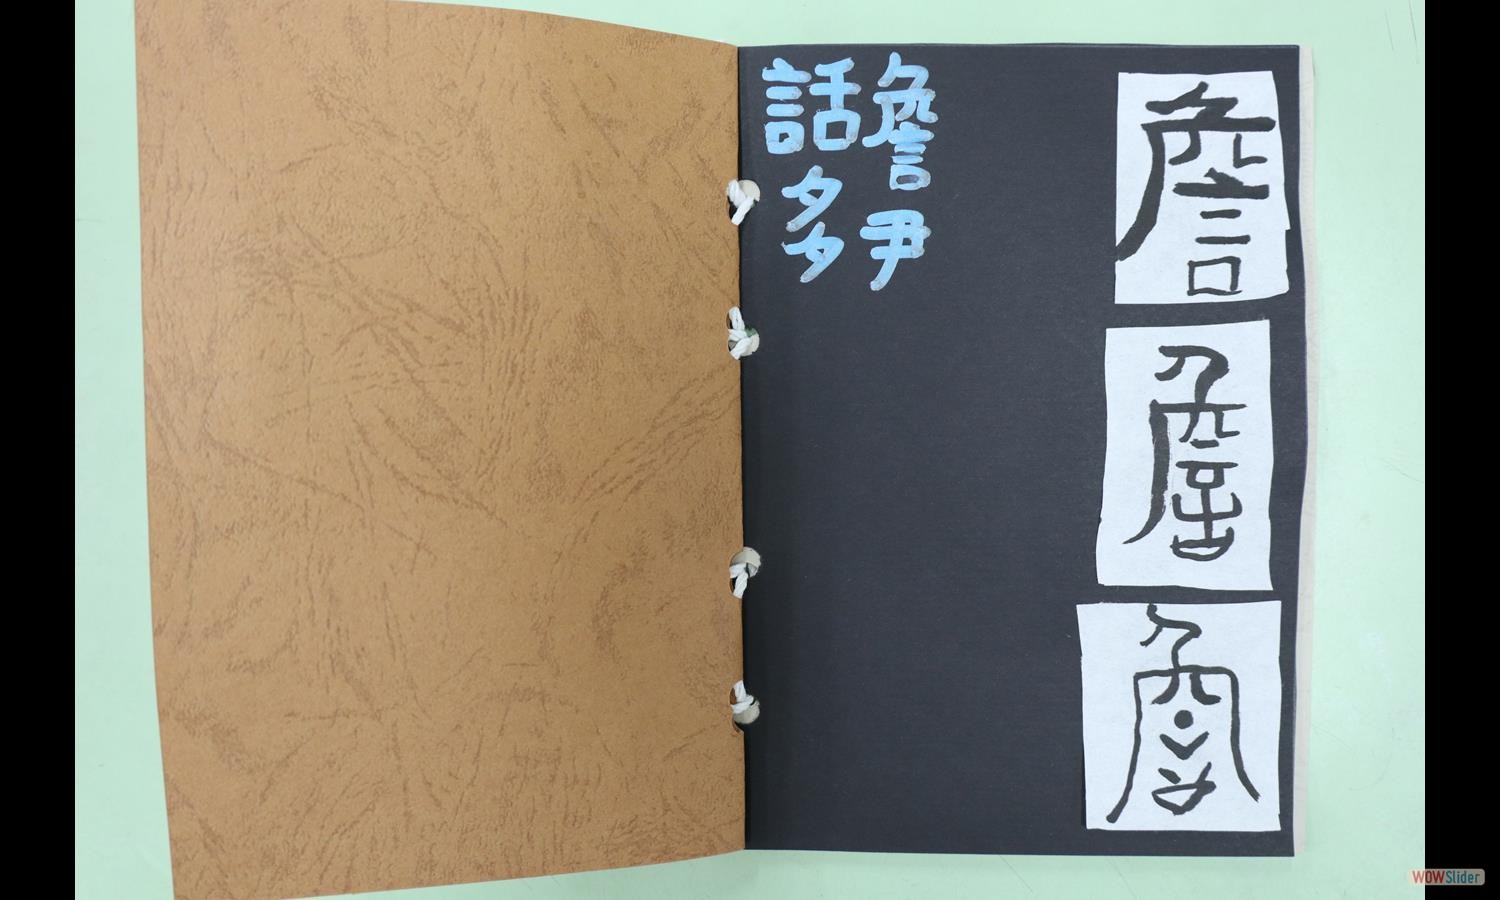 詹
詹
詹
詹尹
話多多
WOWSlider